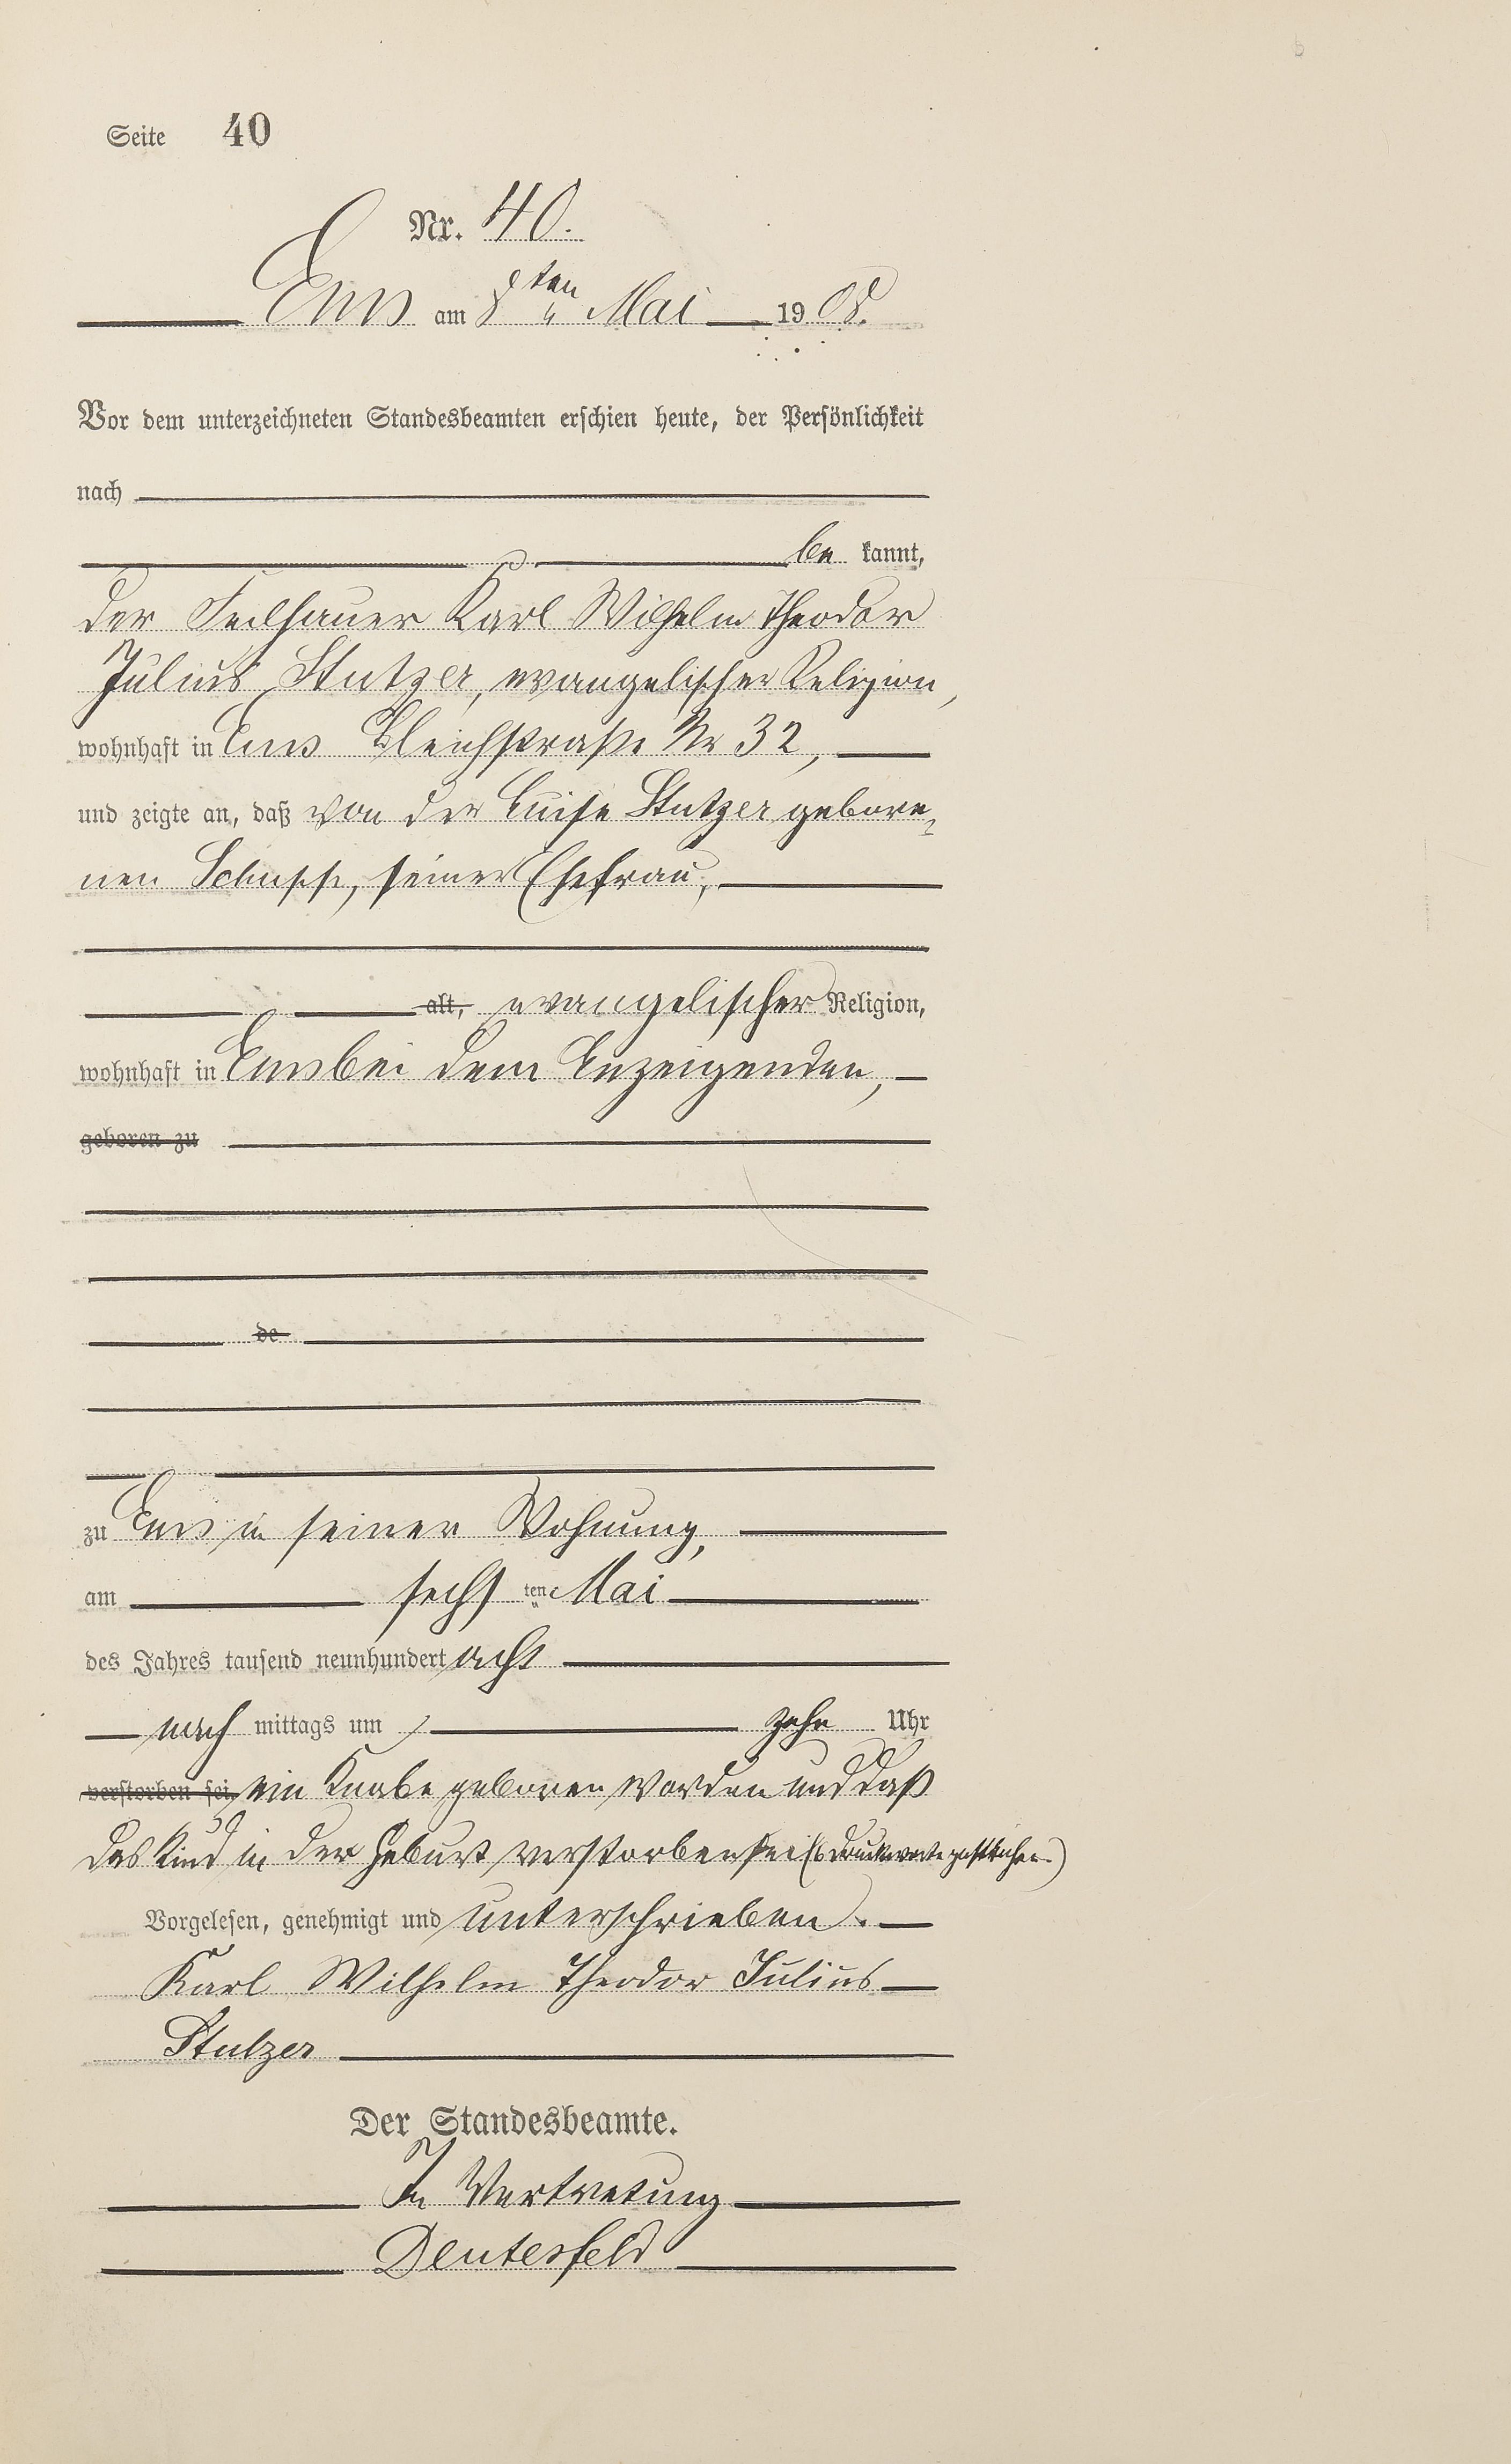 Seite 40
Nr. 40.
Ems am 8ten Mai 1908.
Vor dem unterzeichneten Standesbeamten erschien heute, der Persönlichkeit
nach
be kannt,
der Feilhauer Karl Wilhelm Theodor
Julius Stutzer, evangelischer Religion,
wohnhaft in Ems Bleichstraße Nr 32,
und zeigte an, daß von der Luise Stutzer gebore-
nen Schupp, seiner Ehefrau,
alt, evangelischer Religion,
wohnhaft in Ems bei dem Anzeigenden,
geboren zu
de
zu Ems in seiner Wohnung,
am sechs ten Mai
des Jahres tausend neunhundert acht
nach mittags um zehn Uhr
verstorben sei, ein Knabe geboren worden und daß
das Kind in der Geburt verstorben sei (6 Druckworte gestrichen.)
Vorgelesen, genehmigt und unterschrieben.
Karl Wilhelm Theodor Julius
Stutzer
Der Standesbeamte.
In Vertretung
Deutesfeld